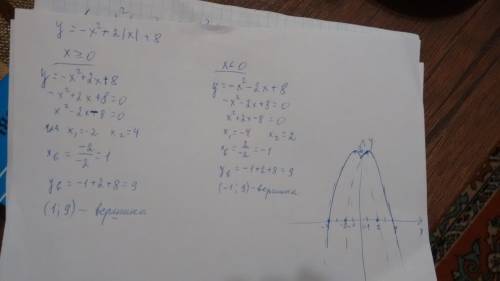 y = -x² + 2|x| + 8
x ≥ 0
y = -x² + 2x + 8
-x² + 2x + 8 = 0
x² - 2x - 8 = 0
x₁ = -2 x₂ = 4
x₆ = -2/-2 = 1
y₆ = -1 + 2 + 8 = 9
(1; 9) - вершина
x < 0
y = -x² - 2x + 8
-x² - 2x + 8 = 0
x² + 2x - 8 = 0
x₁ = -4 x₂ = 2
x₆ = 2/-2 = -1
y₆ = -1 + 2 + 8 = 9
(-1; 9) - вершина